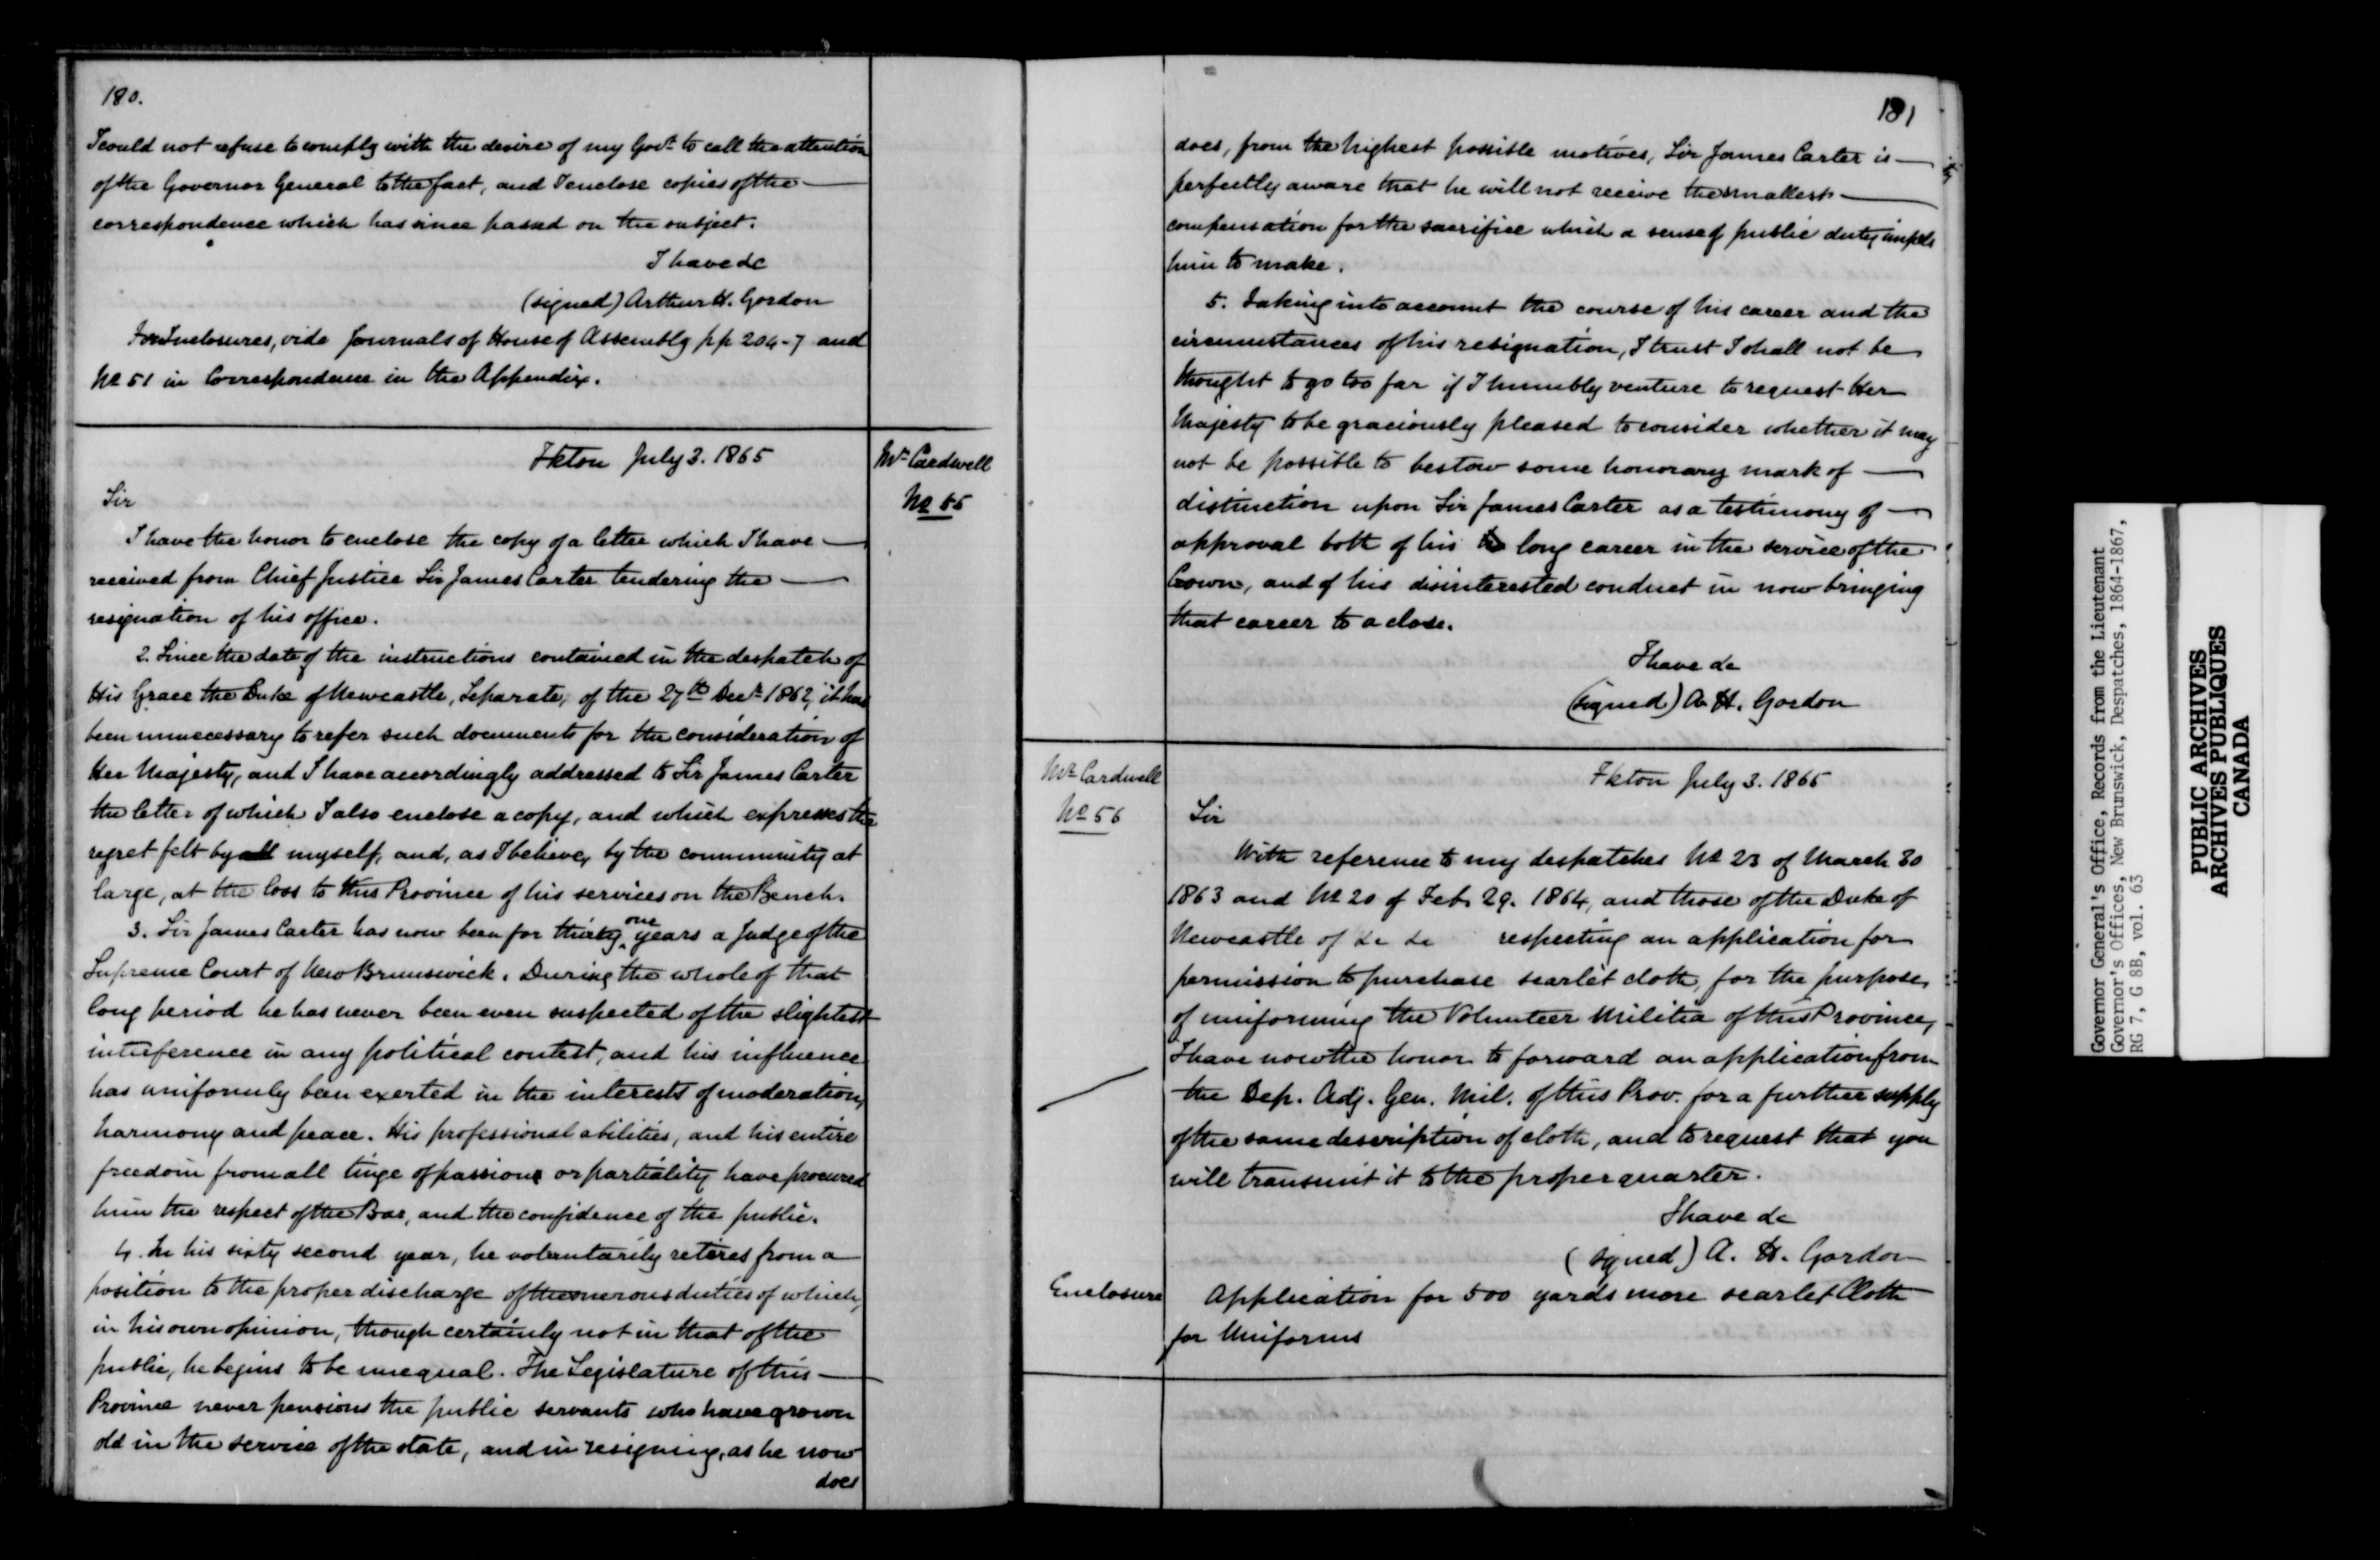 180.
I could not refuse to comply with the desire of my Govt. to call the attention
of the Governor General to the fact, and I enclose copies of the
correspondence which has since passed on the subject.
I have &c
(signed) Arthur H. Gordon
For Inclosures, vide Journals of House of Assembly pp 204-7 and
No 51 in Correspondence in the Appendix.
Fkton July 3. 1865
Mr Cardwell
No 55
Sir
I have the honor to enclose the copy of a letter which I have
received from Chief Justice Sir James Carter tendering the
resignation of his office.
2. Since the date of the instructions contained in the despatch of
His Grace the Duke of Newcastle, Separate, of the 27th Decr 1862, it has
been unnecessary to refer such documents for the consideration of
Her Majesty, and I have accordingly addressed to Sir James Carter
the letter of which I also enclose a copy, and which expresses the
regret felt by all myself, and, as I believe, by the community at
large, at the loss to this Province of his services on the Bench.
3. Sir James Carter has now been for thirty one years a Judge of the
Supreme Court of New Brunswick. During the whole of that
long period he has never been even suspected of the slightest
interference in any political contest, and his influence
has uniformly been exerted in the interests of moderation,
harmony and peace. His professional abilities, and his entire
freedom from all tinge of passion or partiality have procured
him the respect of the Bar, and the confidence of the public.
4. In his sixty second year, he voluntarily retires from a
position to the proper discharge of the onerous duties of which,
in his own opinion, though certainly not in that of the
public, he begins to be unequal. The Legislature of this
Province never pensions the public servants who have grown
old in the service of the state, and in resigning, as he now
does
181
does, from the highest possible motives, Sir James Carter is
perfectly aware that he will not receive the smallest
compensation for the sacrifice which a sense of public duty impels
him to make.
5. Taking into account the course of his career and the
circumstances of his resignation, I trust I shall not be
thought to go too far if I humbly venture to request Her
Majesty to be graciously pleased to consider whether it may
not be possible to bestow some honorary mark of
distinction upon Sir James Carter as a testimony of
approval both of his long career in the service of the
Crown, and of his disinterested conduct in now bringing
that career to a close.
I have &c
(signed) A. H. Gordon
Mr Cardwell
No 56
Fkton July 3. 1865
Sir
With reference to my despatches No 23 of March 30
1863 and No 20 of Feb. 29. 1864, and those of the Duke of
Newcastle of &c &c respecting an application for
permission to purchase scarlet cloth, for the purpose,
of uniforming the Volunteer Militia of this Province,
I have now the honor to forward an application from
the Dep. Adj. Gen. Mil. of this Prov. for a further supply
of the same description of cloth, and to request that you
will transmit it to the proper quarter.
I have &c
(signed) A. H. Gordon
Enclosure
Application for 500 yards more scarlet Cloth
for Uniforms
Governor General's Office, Records from the Lieutenant
Governor's Offices, New Brunswick, Despatches, 1864-1867,
RG 7, G 8B, vol. 63
PUBLIC ARCHIVES
ARCHIVES PUBLIQUES
CANADA